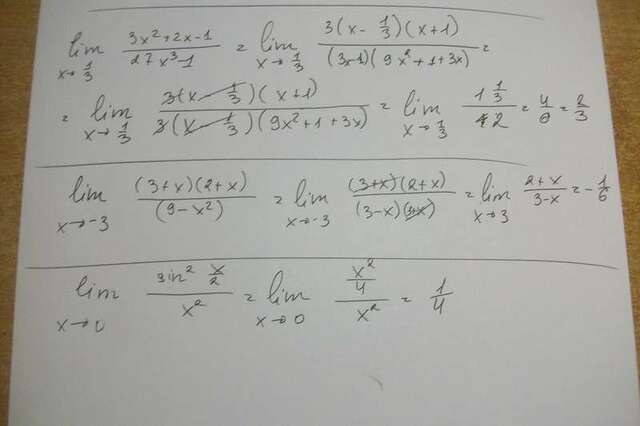 lim x→1/3 (3x²+2x-1)/(27x³-1) = lim x→1/3 3(x-1/3)(x+1)/((3x-1)(9x²+1+3x)) =
= lim x→1/3 3(x-1/3)(x+1)/(3(x-1/3)(9x²+1+3x)) = lim x→1/3 = 2/3
lim x→-3 (3+x)(2+x)/(9-x²) = lim x→-3 (3+x)(2+x)/((3-x)(3+x)) = lim x→3 (2+x)/(3-x) = -1/6
lim x→0 sin² x/2 / x² = lim x→0 x²/4 / x² = 1/4